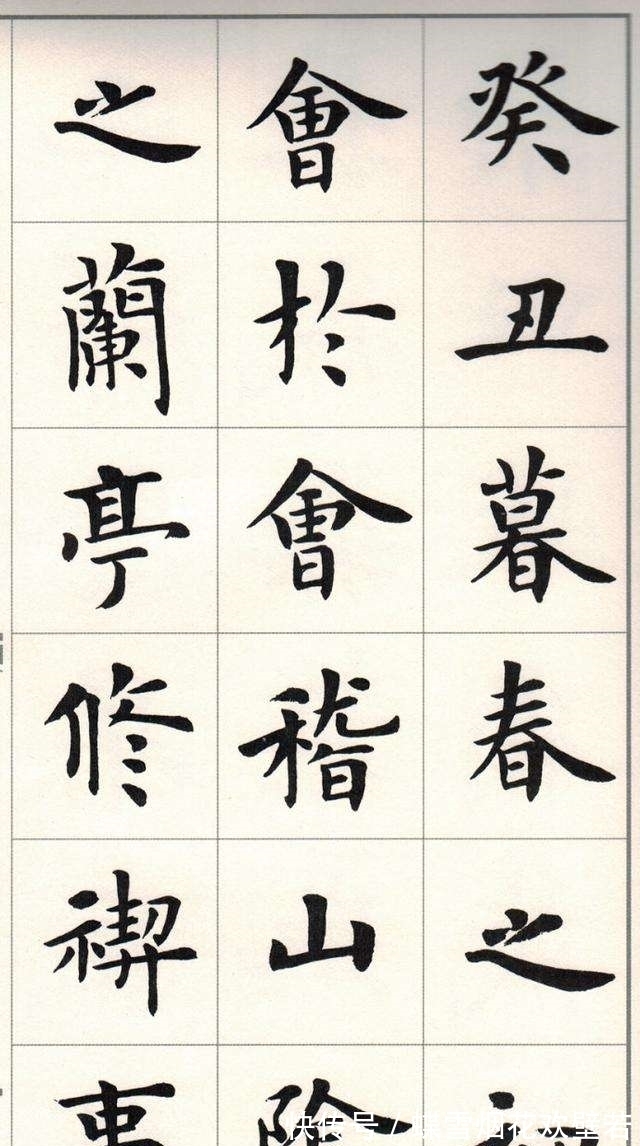 癸丑暮春之
會於會稽山陰
之蘭亭修禊事
快传号 /